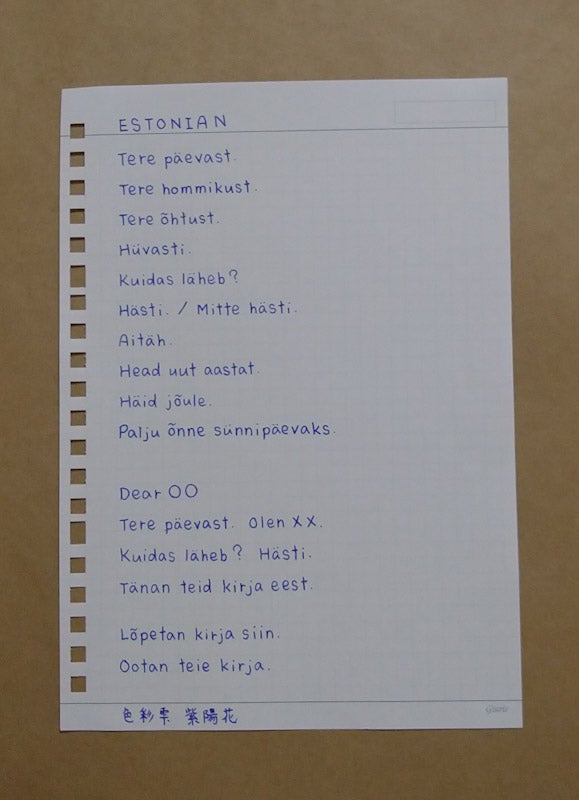 ESTONIAN
Tere päevast.
Tere hommikust.
Tere õhtust.
Hüvasti.
Kuidas läheb?
Hästi. / Mitte hästi.
Aitäh.
Head uut aastat.
Häid jõule.
Palju õnne sünnipäevaks.
Dear OO
Tere päevast. Olen XX.
Kuidas läheb? Hästi.
Tänan teid kirja eest.
Lõpetan kirja siin.
Ootan teie kirja.
色彩雫 紫陽花